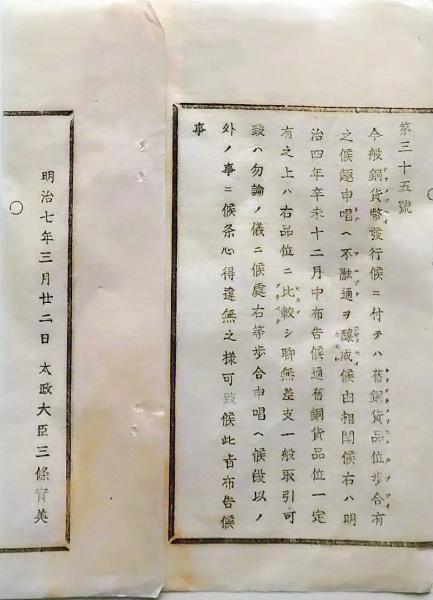 第三十五號
今般銅貨幣發行候ニ付テハ舊銅貨品位歩合有
之候趣申唱ヘ不融通ヲ釀成候由相聞候右ハ明
治四年辛未十二月中布告候通舊銅貨品位一定
有之上ハ右品位ニ比較シ聊無差支一般取引可
致ハ勿論ノ儀ニ候處右等歩合申唱ヘ候段以ノ
外ノ事ニ候条心得違無之樣可致候此旨布告候
事
明治七年三月廿二日 太政大臣三條實美